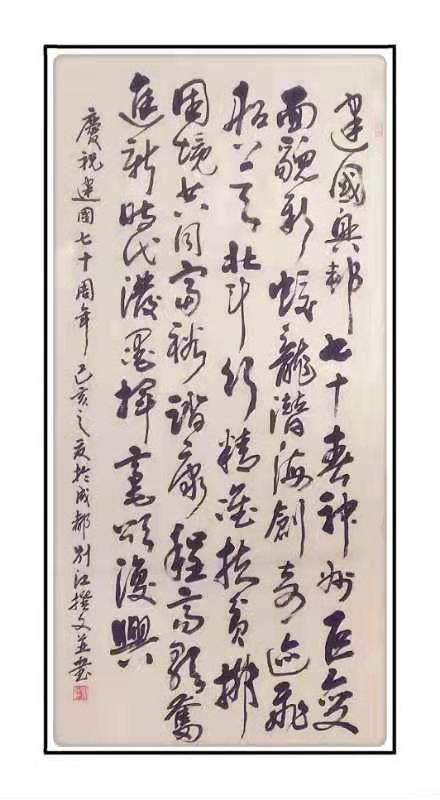 建國興邦七十春神州巨變
面貌新蛟龍潛海創奇迹飛
船上天北斗行精準扶貧擺
困境共同富裕踏康程高歌奮
進新時代潑墨揮毫頌復興
慶祝建國七十周年己亥之夏於成都別江撰文並書